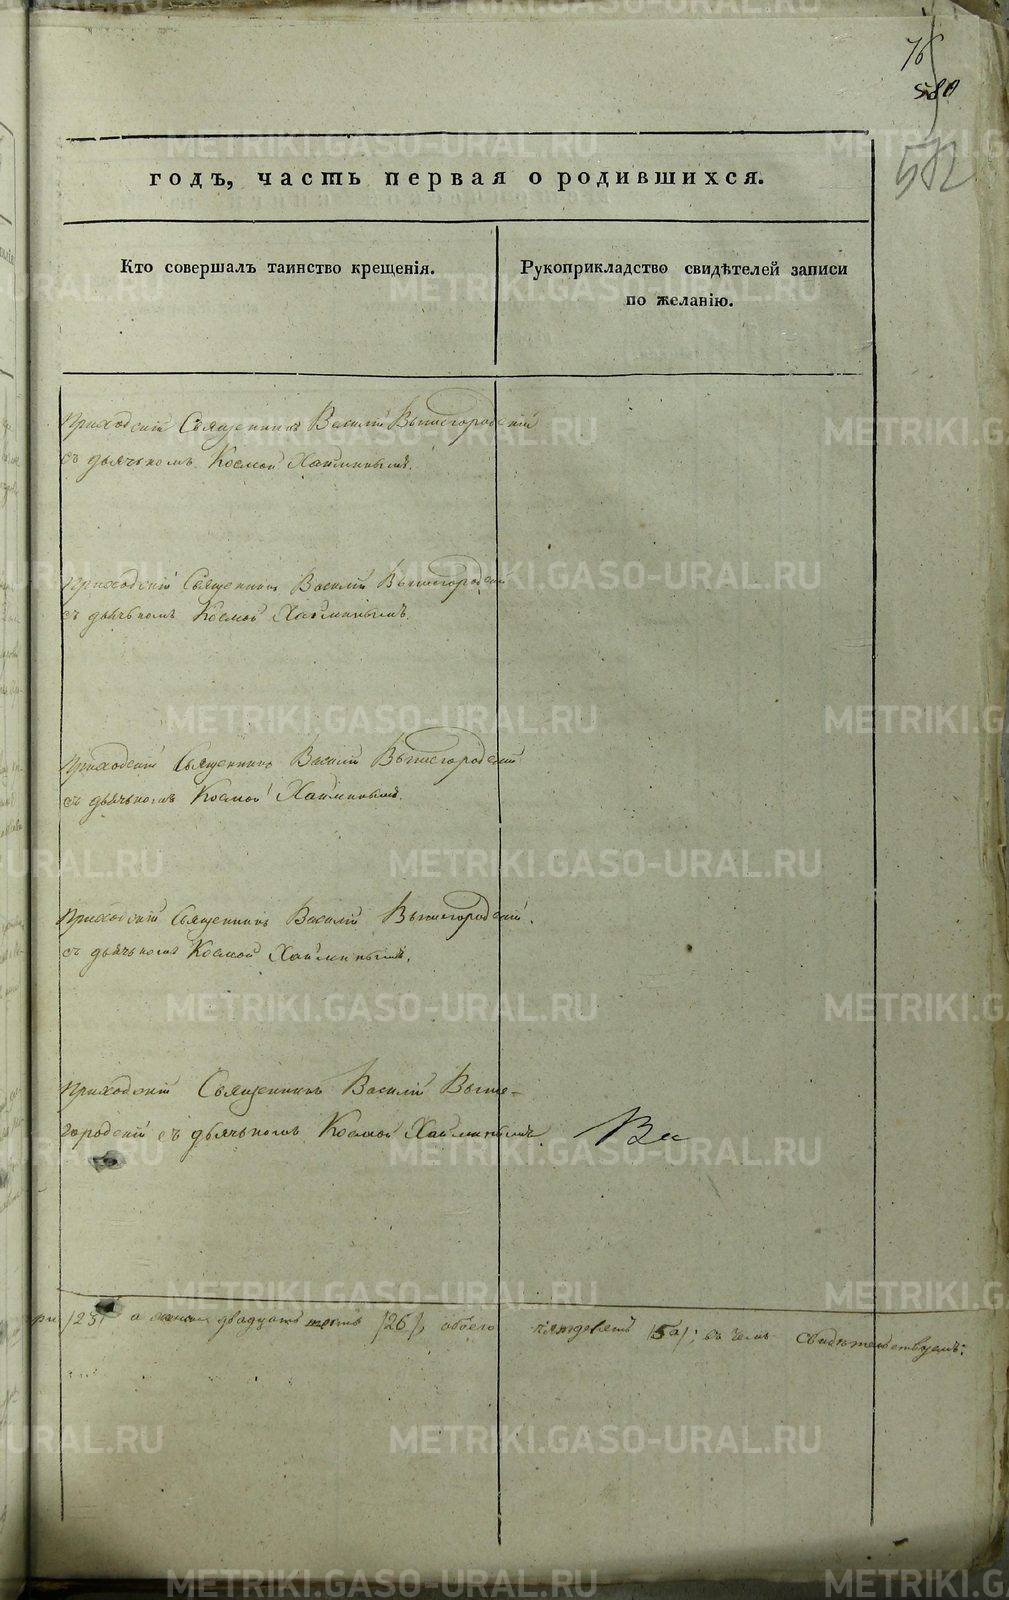 76
580
512
годъ, часть первая о родившихся.
Кто совершалъ таинство крещенія.
Рукоприкладство свидѣтелей записи
по желанію.
Приходскій Священникъ Василій Вышегородскій
съ дьячькомъ Космой Хайминымъ.
Приходскій Священникъ Василій Вышегородскій
съ дьячькомъ Космой Хайминымъ.
Приходскій Священникъ Василій Вышегородскій
съ дьячькомъ Космой Хайминымъ.
Приходскій Священникъ Василій Вышегородскій.
съ дьячькомъ Космой Хайминымъ.
Приходскій Священникъ Василій Выше-
городскій съ дьячькомъ Космой Хайминымъ. Ва
ри а двадцать шесть /26/, обоего пядесятъ; въ чемъ свидѣтельствуемъ:
METRIKI.GASO-URAL.RU